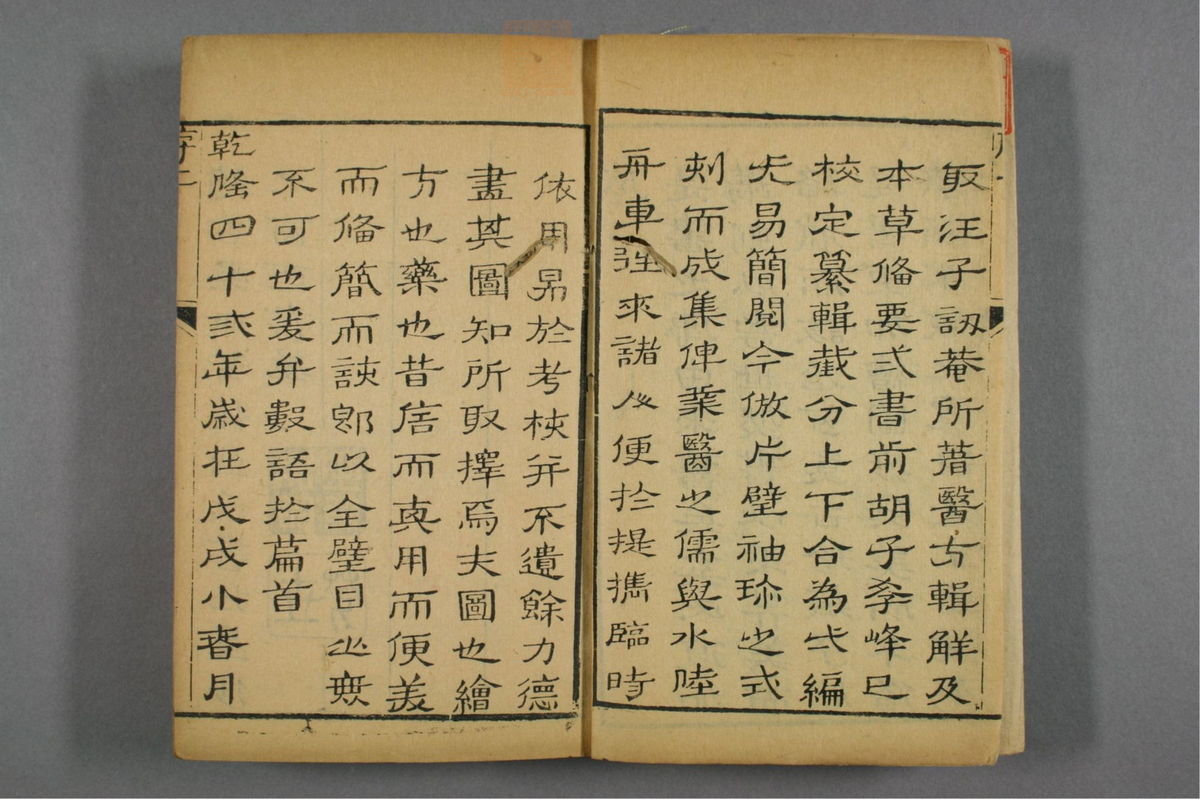 取汪子訒菴所著醫方輯解及
本草備要弍書前胡子李峰已
校定纂輯截分上下合為此編
尤易簡閱今倣片璧袖珍之式
刻而成集俾業醫之儒與水陸
舟車往來諸公便於提攜臨時
依用易於考校并不遺餘力德
盡其圖知所取擇焉夫圖也繪
方也藥也昔信而真用而便美
而備簡而該即以全璧目之無
不可也爰弁數語於篇首
乾隆四十弍年歲在戊戌小春月
序二